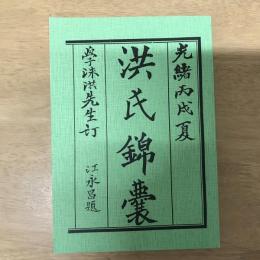 光緒丙戌夏
洪氏錦囊
學洙洪先生訂
江永昌題